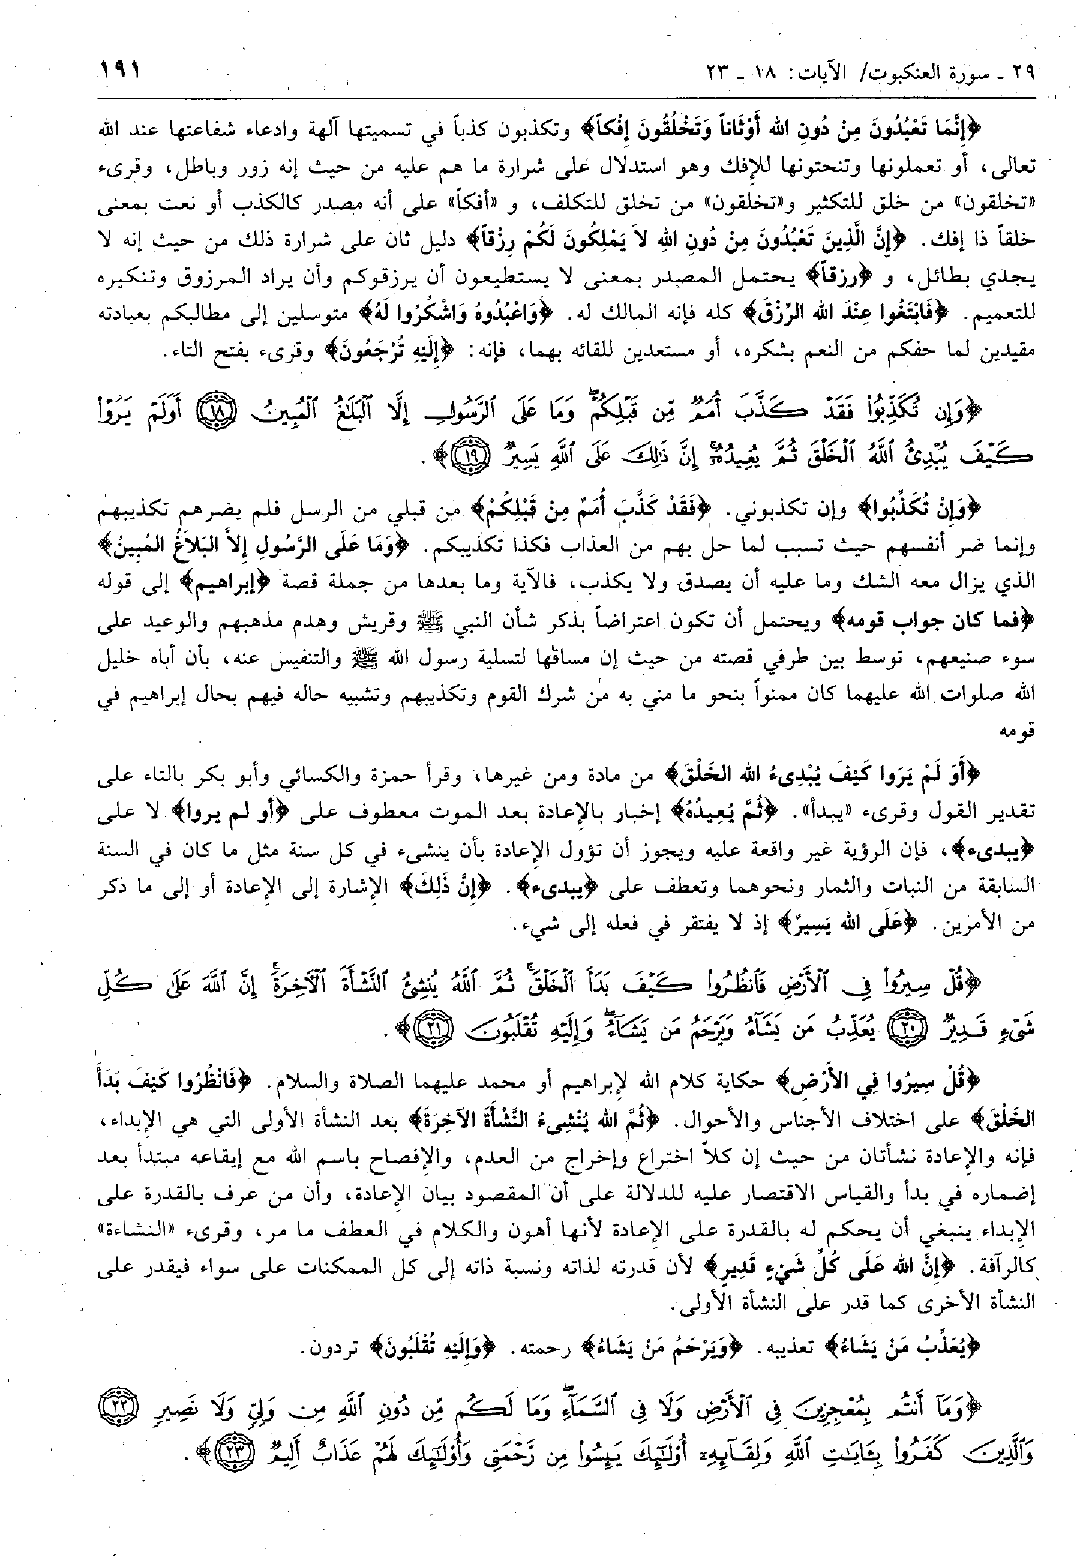 ٢٩ ـ سورة العنكبوت/ الآيات: ١٨ ـ ٢٣
١٩١
﴿إِنَّمَا تَعْبُدُونَ مِنْ دُونِ الله أَوْثَاناً وَتَخْلُقُونَ إِفْكاً﴾ وتكذبون كذباً في تسميتها آلهة وادعاء شفاعتها عند الله
تعالى، أو تعملونها وتنحتونها للإفك وهو استدلال على شرارة ما هم عليه من حيث إنه زور وباطل، وقرىء
«تخلقون» من خلق للتكثير و«تخلقون» من تخلق للتكلف، و «أفكاً» على أنه مصدر كالكذب أو نعت بمعنى
خلقاً ذا إفك. ﴿إِنَّ الَّذِينَ تَعْبُدُونَ مِنْ دُونِ الله لاَ يَمْلِكُونَ لَكُمْ رِزْقاً﴾ دليل ثان على شرارة ذلك من حيث إنه لا
يجدي بطائل، و ﴿رزقاً﴾ يحتمل المصدر بمعنى لا يستطيعون أن يرزقوكم وأن يراد المرزوق وتنكيره
للتعميم. ﴿فَابْتَغُوا عِنْدَ الله الرِّزْقَ﴾ كله فإنه المالك له. ﴿وَاعْبُدُوهُ وَاشْكُرُوا لَهُ﴾ متوسلين إلى مطالبكم بعبادته
مقيدين لما حفكم من النعم بشكره، أو مستعدين للقائه بهما، فإنه: ﴿إِلَيْهِ تُرْجَعُونَ﴾ وقرىء بفتح التاء.
﴿وَإِن تُكَذِّبُوا۟ فَقَدْ كَذَّبَ أُمَمٌ مِّن قَبْلِكُمْ ۖ وَمَا عَلَى ٱلرَّسُولِ إِلَّا ٱلْبَلَٰغُ ٱلْمُبِينُ ۝١٨ أَوَلَمْ يَرَوْا۟
كَيْفَ يُبْدِئُ ٱللَّهُ ٱلْخَلْقَ ثُمَّ يُعِيدُهُۥٓ ۚ إِنَّ ذَٰلِكَ عَلَى ٱللَّهِ يَسِيرٌ ۝١٩﴾.
﴿وَإِنْ تُكَذِّبُوا﴾ وإن تكذبوني. ﴿فَقَدْ كَذَّبَ أُمَمٌ مِنْ قَبْلِكُمْ﴾ من قبلي من الرسل فلم يضرهم تكذيبهم
وإنما ضر أنفسهم حيث تسبب لما حل بهم من العذاب فكذا تكذيبكم. ﴿وَمَا عَلَى الرَّسُولِ إِلاَّ الْبَلاَغُ المُبِينُ﴾
الذي يزال معه الشك وما عليه أن يصدق ولا يكذب، فالآية وما بعدها من جملة قصة ﴿إبراهيم﴾ إلى قوله
﴿فما كان جواب قومه﴾ ويحتمل أن تكون اعتراضاً بذكر شأن النبي ﷺ وقريش وهدم مذهبهم والوعيد على
سوء صنيعهم، توسط بين طرفي قصته من حيث إن مساقها لتسلية رسول الله ﷺ والتنفيس عنه، بأن أباه خليل
الله صلوات الله عليهما كان ممنواً بنحو ما مني به من شرك القوم وتكذيبهم وتشبيه حاله فيهم بحال إبراهيم في
قومه
﴿أَوَ لَمْ يَرَوا كَيْفَ يُبْدِىءُ الله الخَلْقَ﴾ من مادة ومن غيرها، وقرأ حمزة والكسائي وأبو بكر بالتاء على
تقدير القول وقرىء «يبدأ». ﴿ثُمَّ يُعِيدُهُ﴾ إخبار بالإعادة بعد الموت معطوف على ﴿أو لم يروا﴾ لا على
﴿يبدىء﴾، فإن الرؤية غير واقعة عليه ويجوز أن تؤول الإعادة بأن ينشىء في كل سنة مثل ما كان في السنة
السابقة من النبات والثمار ونحوهما وتعطف على ﴿يبدىء﴾. ﴿إِنَّ ذَلِكَ﴾ الإشارة إلى الإعادة أو إلى ما ذكر
من الأمرين. ﴿عَلَى الله يَسِيرٌ﴾ إذ لا يفتقر في فعله إلى شيء.
﴿قُلْ سِيرُوا۟ فِى ٱلْأَرْضِ فَٱنظُرُوا۟ كَيْفَ بَدَأَ ٱلْخَلْقَ ۚ ثُمَّ ٱللَّهُ يُنشِئُ ٱلنَّشْأَةَ ٱلْآخِرَةَ ۚ إِنَّ ٱللَّهَ عَلَىٰ كُلِّ
شَىْءٍ قَدِيرٌ ۝٢٠ يُعَذِّبُ مَن يَشَآءُ وَيَرْحَمُ مَن يَشَآءُ ۖ وَإِلَيْهِ تُقْلَبُونَ ۝٢١﴾.
﴿قُلْ سِيرُوا فِي الأَرْضِ﴾ حكاية كلام الله لإبراهيم أو محمد عليهما الصلاة والسلام. ﴿فَانْظُرُوا كَيْفَ بَدَأَ
الخَلْقَ﴾ على اختلاف الأجناس والأحوال. ﴿ثُمَّ الله يُنْشِىءُ النَّشْأَةَ الآخِرَةَ﴾ بعد النشأة الأولى التي هي الإبداء،
فإنه والإعادة نشأتان من حيث إن كلاً اختراع وإخراج من العدم، والإفصاح باسم الله مع إيقاعه مبتدأ بعد
إضماره في بدأ والقياس الاقتصار عليه للدلالة على أن المقصود بيان الإعادة، وأن من عرف بالقدرة على
الإبداء ينبغي أن يحكم له بالقدرة على الإعادة لأنها أهون والكلام في العطف ما مر، وقرىء «النشاءة»
كالرآفة. ﴿إِنَّ الله عَلَى كُلِّ شَيْءٍ قَدِيرٍ﴾ لأن قدرته لذاته ونسبة ذاته إلى كل الممكنات على سواء فيقدر على
النشأة الأخرى كما قدر على النشأة الأولى.
﴿يُعَذِّبُ مَنْ يَشَاءُ﴾ تعذيبه. ﴿وَيَرْحَمُ مَنْ يَشَاءُ﴾ رحمته. ﴿وَإِلَيْهِ تُقْلَبُونَ﴾ تردون.
﴿وَمَآ أَنتُم بِمُعْجِزِينَ فِى ٱلْأَرْضِ وَلَا فِى ٱلسَّمَآءِ ۖ وَمَا لَكُم مِّن دُونِ ٱللَّهِ مِن وَلِىٍّ وَلَا نَصِيرٍ ۝٢٢
وَٱلَّذِينَ كَفَرُوا۟ بِـَٔايَٰتِ ٱللَّهِ وَلِقَآئِهِۦٓ أُو۟لَٰٓئِكَ يَئِسُوا۟ مِن رَّحْمَتِى وَأُو۟لَٰٓئِكَ لَهُمْ عَذَابٌ أَلِيمٌ ۝٢٣﴾.